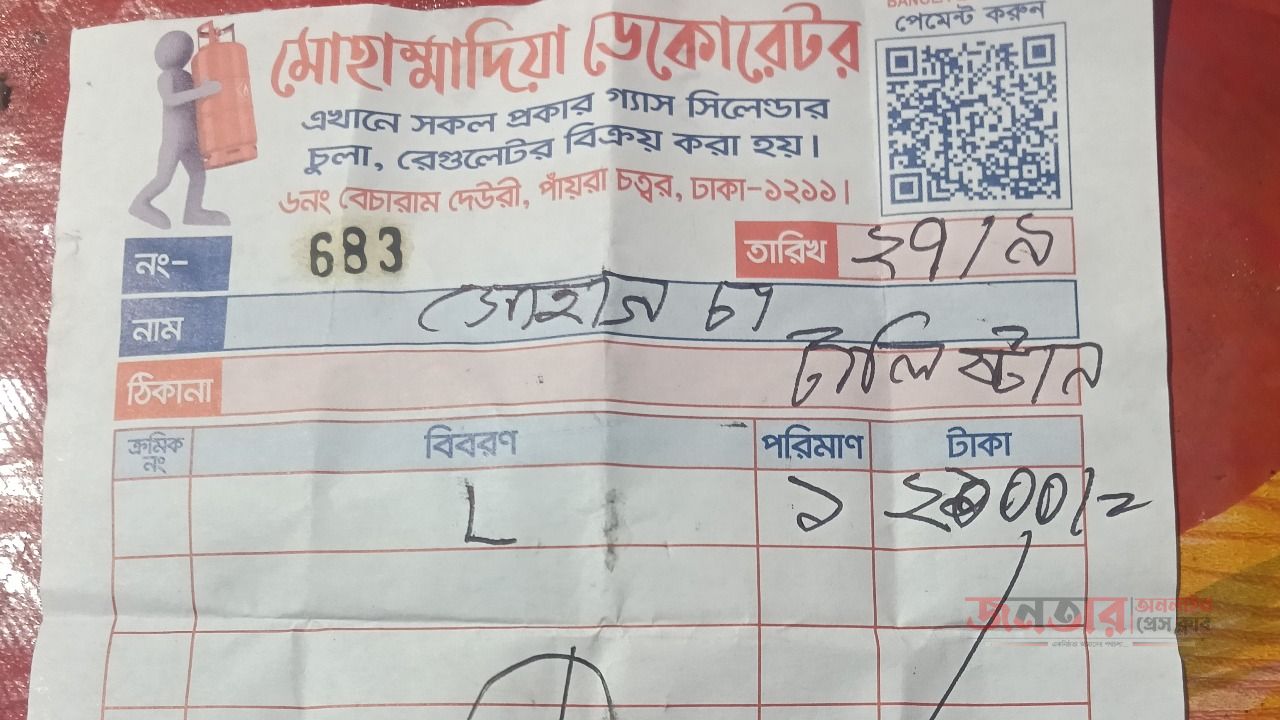 পেমেন্ট করুন
মোহাম্মাদিয়া ডেকোরেটর
এখানে সকল প্রকার গ্যাস সিলেন্ডার
চুলা, রেগুলেটর বিক্রয় করা হয়।
৬নং বেচারাম দেউরী, পাঁয়রা চত্বর, ঢাকা-১২১১।
নং- 683 তারিখ ২৭/৯
নাম সোহাগ চা
ঠিকানা টালি ষ্টান
ক্রমিক নং বিবরণ পরিমাণ টাকা
L ১
জনতার অনলাইন
প্রেস ক্লাব